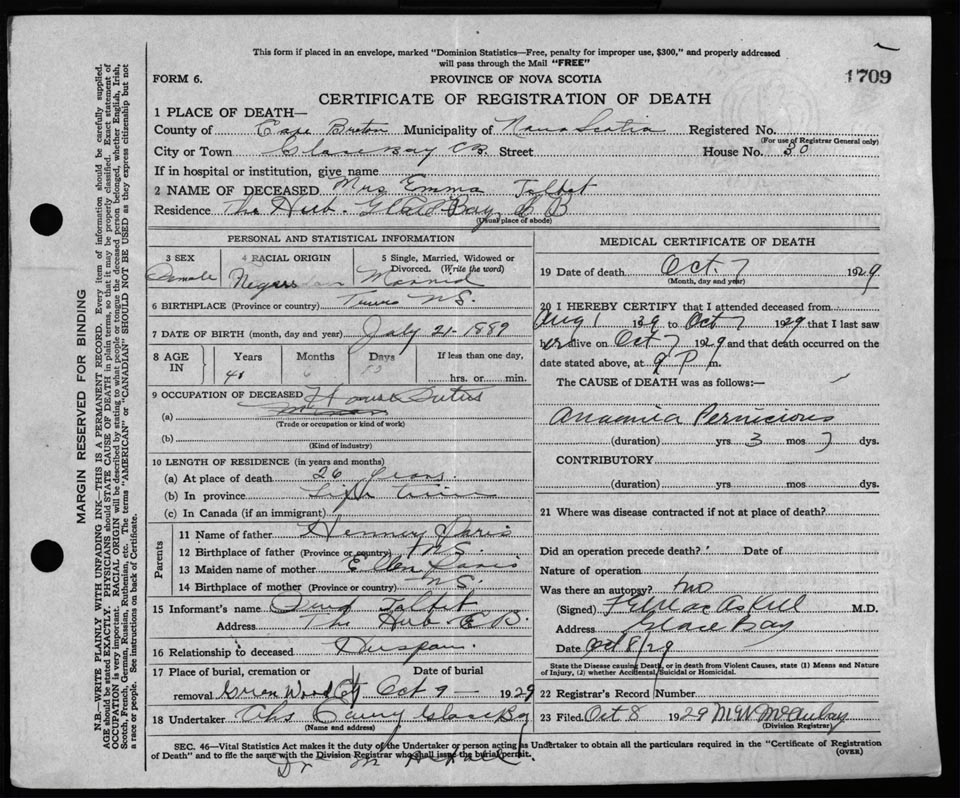 This form if placed in an envelope, marked "Dominion Statistics—Free, penalty for improper use, $300," and properly addressed
will pass through the Mail "FREE"
FORM 6.
PROVINCE OF NOVA SCOTIA
1709
CERTIFICATE OF REGISTRATION OF DEATH
1 PLACE OF DEATH—
County of Cape Breton Municipality of Nova Scotia Registered No.
(For use of Registrar General only)
City or Town Glace Bay CB. Street House No. 30
If in hospital or institution, give name
2 NAME OF DECEASED Mrs Emma Talbet
Residence The Hub. Glace Bay C B
(Usual place of abode)
PERSONAL AND STATISTICAL INFORMATION
3 SEX
4 RACIAL ORIGIN
5 Single, Married, Widowed or
Divorced. (Write the word)
6 BIRTHPLACE (Province or country) Truro N.S.
7 DATE OF BIRTH (month, day and year) July 21 1889
8 AGE
IN
Years
Months
Days
If less than one day,
hrs. or min.
9 OCCUPATION OF DECEASED House
(a)
(Trade or occupation or kind of work)
(b)
(Kind of industry)
10 LENGTH OF RESIDENCE (in years and months)
(a) At place of death 26 years
(b) In province Life time
(c) In Canada (if an immigrant)
Parents
11 Name of father
12 Birthplace of father (Province or country) N.S.
13 Maiden name of mother
14 Birthplace of mother (Province or country) N.S.
15 Informant's name Talbet
Address The Hub C B.
16 Relationship to deceased
17 Place of burial, cremation or
removal Green Wood
Date of burial
Oct 9 — 1929
18 Undertaker Glace Bay
(Name and address)
MEDICAL CERTIFICATE OF DEATH
19 Date of death Oct. 7 1929
(Month, day and year)
20 I HEREBY CERTIFY that I attended deceased from
Aug 1 1929 to Oct 7 1929 that I last saw
her alive on Oct 7 1929 and that death occurred on the
date stated above, at 9 P m.
The CAUSE of DEATH was as follows:—
Anaemia Pernicious
(duration) yrs 3 mos 7 dys.
CONTRIBUTORY
(duration) yrs mos dys.
21 Where was disease contracted if not at place of death?
Did an operation precede death? Date of
Nature of operation
Was there an autopsy? no
(Signed) M.D.
Address Glace Bay
Date Oct 8/29
State the Disease causing Death, or in death from Violent Causes, state (1) Means and Nature
of Injury, (2) whether Accidental, Suicidal or Homicidal.
22 Registrar's Record Number
23 Filed Oct 8 1929
(Division Registrar)
SEC. 46—Vital Statistics Act makes it the duty of the Undertaker or person acting as Undertaker to obtain all the particulars required in the "Certificate of Registration
of Death" and to file the same with the Division Registrar who shall issue the burial permit.
(OVER)
MARGIN RESERVED FOR BINDING
N.B.—WRITE PLAINLY WITH UNFADING INK—THIS IS A PERMANENT RECORD. Every item of information should be carefully supplied.
AGE should be stated EXACTLY. PHYSICIANS should STATE CAUSE OF DEATH in plain terms, so that it may be properly classified. Exact statement of
OCCUPATION is very important. RACIAL ORIGIN will be described by stating to what people or tongue the deceased person belonged, whether English, Irish,
Scotch, French, German, Russian, Ruthenian, etc. The terms "AMERICAN" or "CANADIAN" SHOULD NOT BE USED as they express citizenship but not
a race or people. See instructions on back of Certificate.